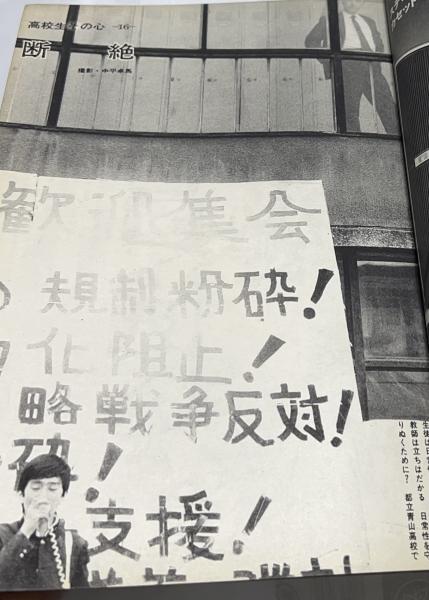 高校生・その心—16—
断絶
撮影・中平卓馬
歓迎集会
の規制粉砕!
化阻止!
略戦争反対!
砕!
支援!
教師は立ちはだかる 日常性を守
りぬくために? 都立青山高校で